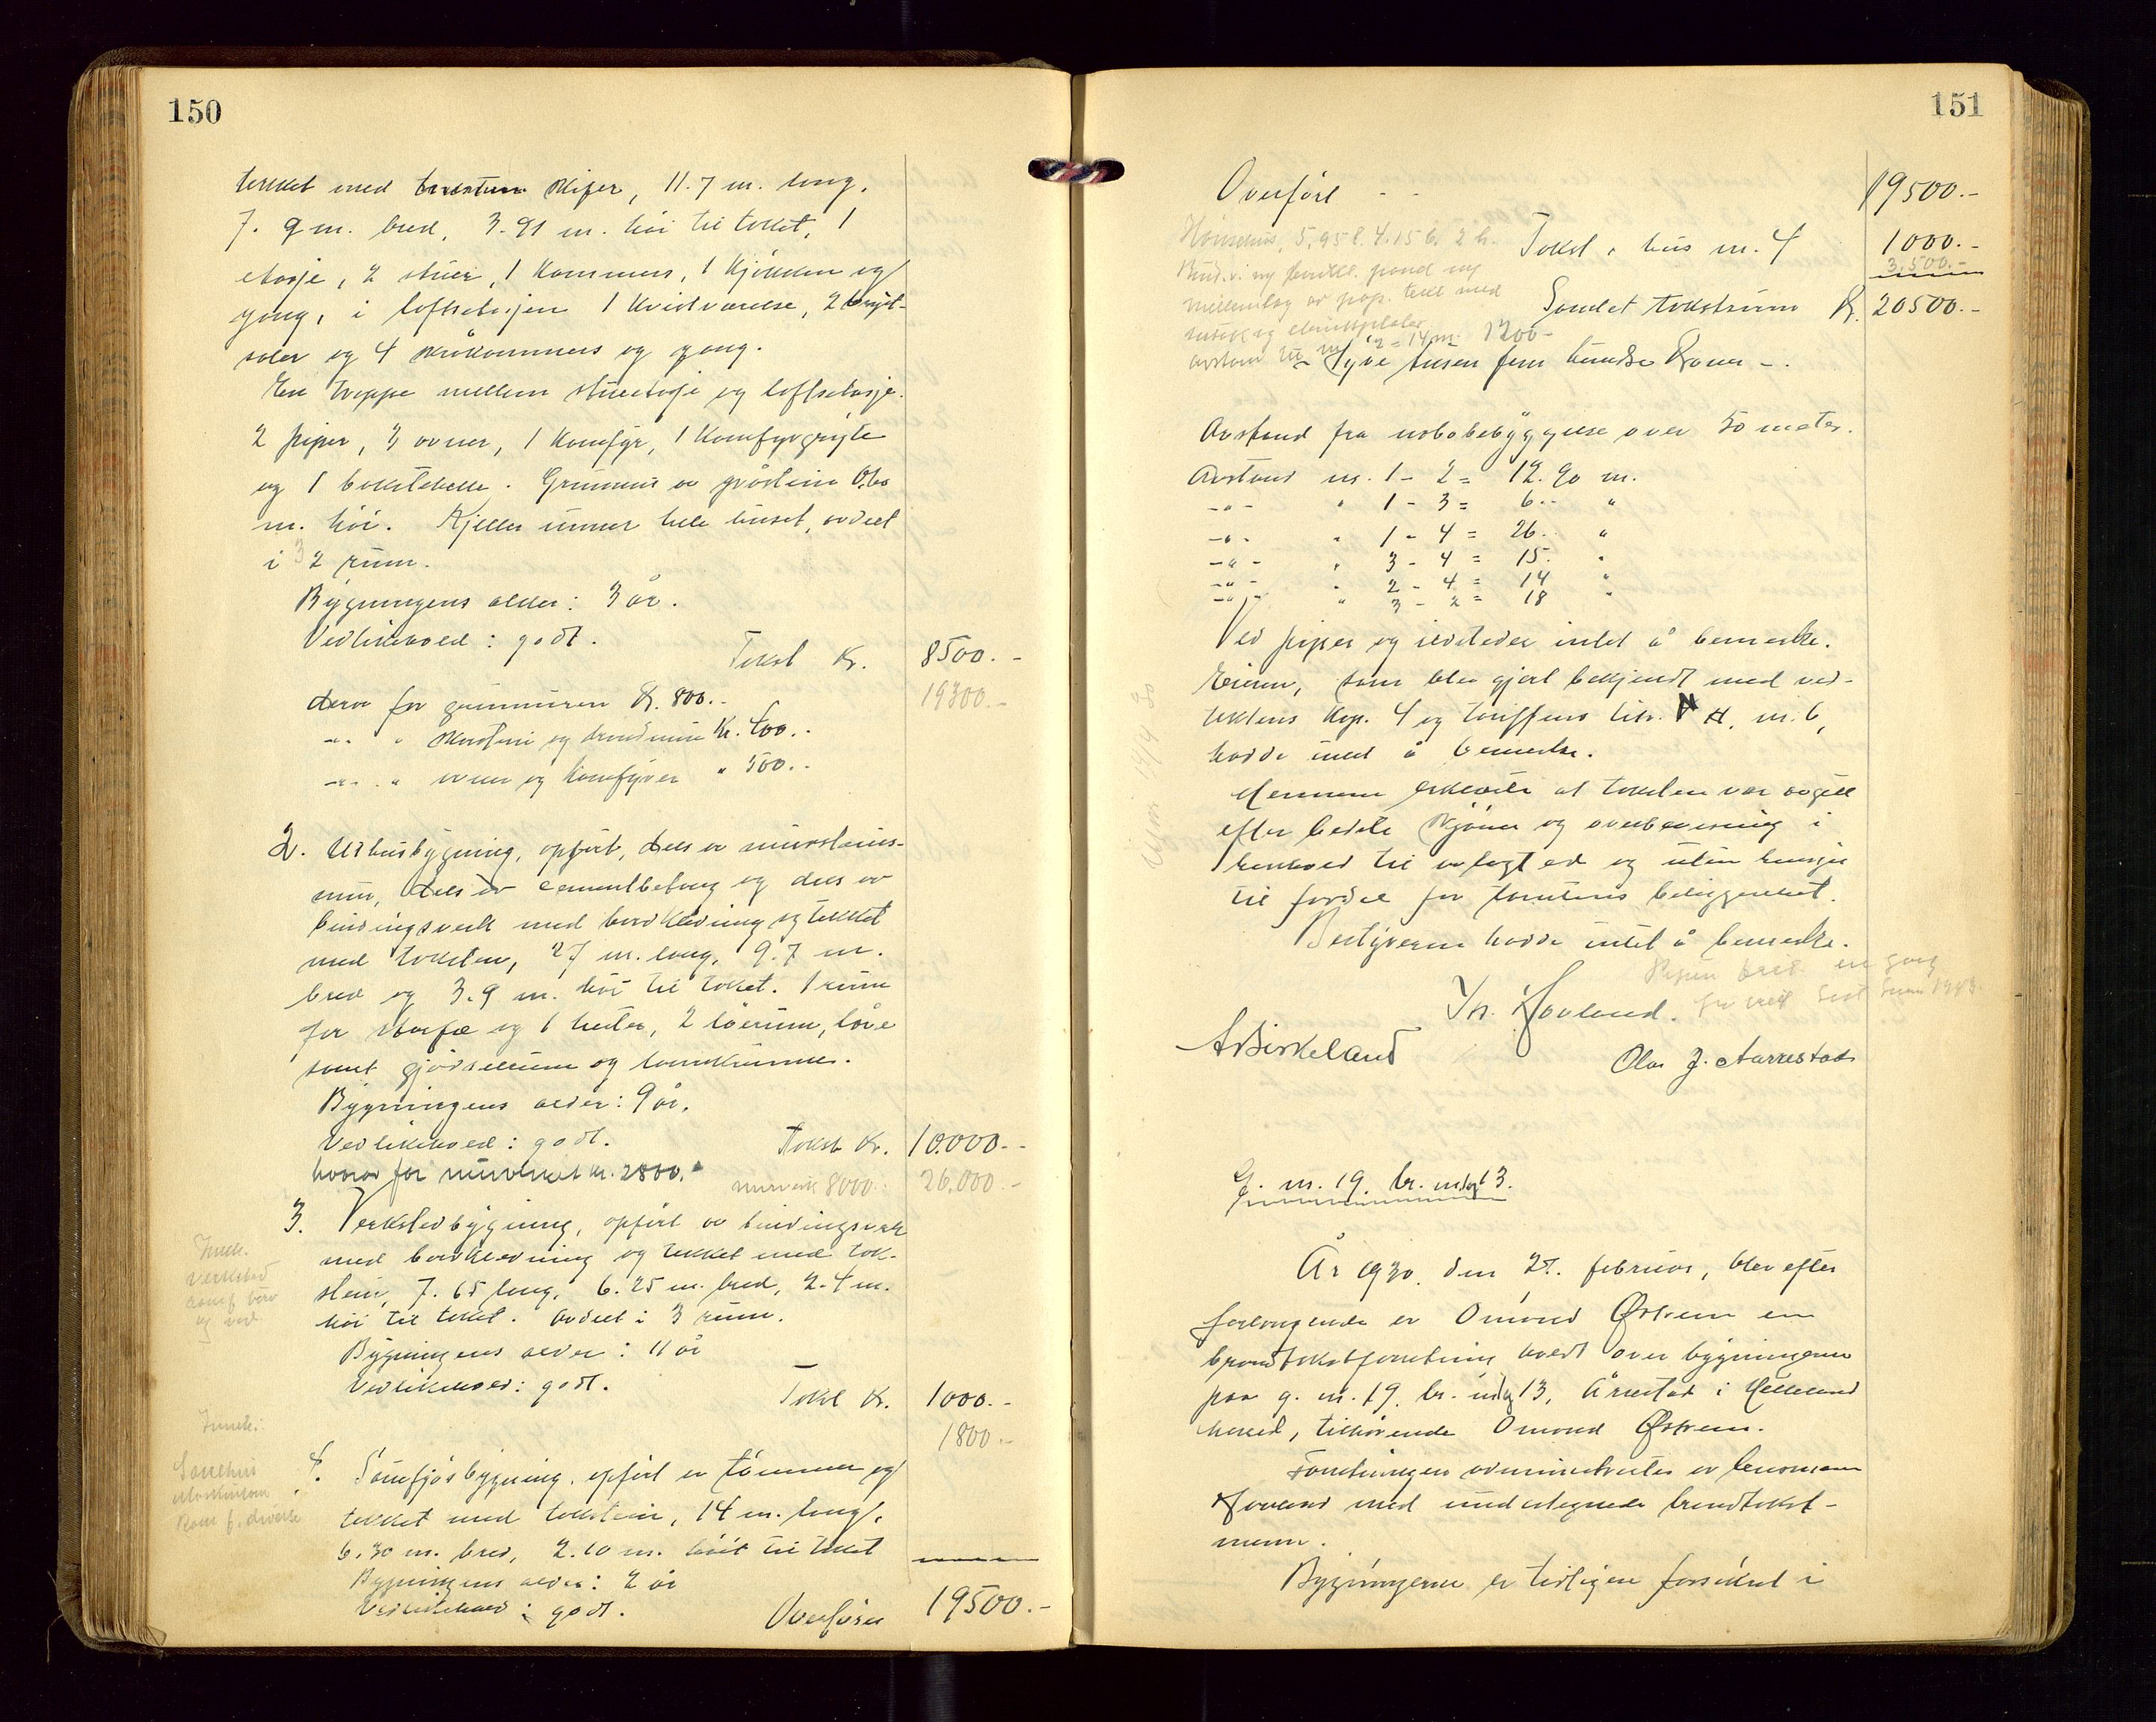 150
tekket med skifer, 11.7 m. lang,
7.9 m. bred, 3.91 m. høi til taket, 1
etasje, 2 stuer, 1 kammers, 1 kjøkken og
gang, i loftsetasjen 1 kvistværelse, 2
og 4 skråkammers og gang.
En trappe mellem stueetasje og loftsetasje.
2 piper, 3 ovner, 1 komfyr, 1 komfyrgryte
og 1 bakstehelle. Grunmur av gråstein 0,60
m. høi. Kjeller under hele huset, avdelt
i 2 rum.
Bygningens alder: 3 år.
Vedlikehold: godt.
Takst Kr. 8500.-
19300.-
derav for grunmuren Kr. 800.-
-"- " skorstein og brandmur Kr. 400.-
-"- " ovner og komfyrer " 500.-
2. Uthusbygning, opført, dels av murstens-
mur, dels av cementbetong og dels av
bindingsverk med bordklædning og tekket
med taksten, 27 m. lang, 9.7 m.
bred og 3.9 m. høi til taket. 1 rum
for storfæ og 1 hester, 2 løerum, løve
samt gjødselrum og
Bygningens alder: 9 år.
Vedlikehold: godt.
Takst Kr. 10.000.-
hvorav for murverket kr. 2800.-
murverk 8000.- 26.000.-
3. Verkstedbygning, opført av bindingsverk
med bordklædning og tekket med tak-
stein, 7.65 lang, 6.25 m. bred, 2.4 m.
høi til taket. Avdelt i 3 rum.
Innh.
Verksted
og ved
Bygningens alder: 11 år
Vedlikehold: godt.
Takst Kr. 1000.-
1800.-
Innh:
Sauehus
Rom f. diverse
4. Sauefjøsbygning, opført av tømmer og
tekket med takstein, 14 m. lang,
6.30 m. bred, 2.10 m. høit til taket
Bygningens alder: 2 år
Vedlikehold: godt.
Overføres 19500.-
151
Overført - - 19500.-
Hønsehus, 5,95 l. 4.15 b. 2 h.
Takst, hus nr. 4 1000.-
3.500.-
Samlet takstsum Kr. 20500.-
1200-
- Tyve tusen fem hundre Kroner -.
Avstand fra nabobebyggelse over 50 meter.
Avstand nr. 1 - 2 = 12.90 m.
-"- " 1 - 3 = 6.- "
-"- " 1 - 4 = 26.- "
-"- " 3 - 4 = 15. "
-"- " 2 - 4 = 14 "
-"- " 3 - 2 = 18 "
Ved piper og ildsteder intet å bemerke.
Eieren, som blev gjort bekjendt med ved-
tektens kap. 4 og tariffens litr. H, nr. 6,
hadde intet å bemerke.
Mennene erklærte at taksten var avgitt
efter beste skjønn og overbevisning i
henhold til avlagt ed og uten hensyn
til fordel for tomtens beliggenhet.
Bestyreren hadde intet å bemerke.
Th. Hovland.
A Birkeland
Olas J. Aarrestad
G. nr. 19 br. nr. 1 og 13.
År 1930, den 27. februar, blev efter
forlangende av Omund Østrem en
brandtakstforretning holdt over bygningerne
paa g. nr. 19, br. nr. 1 og 13, Årrestad i Helleland
herred, tilhørende Omund Østrem.
Forretningen administreres av lensmann
Hovland med undertegnede brandtakst-
menn.
Bygningerne er tidligere forsikret i